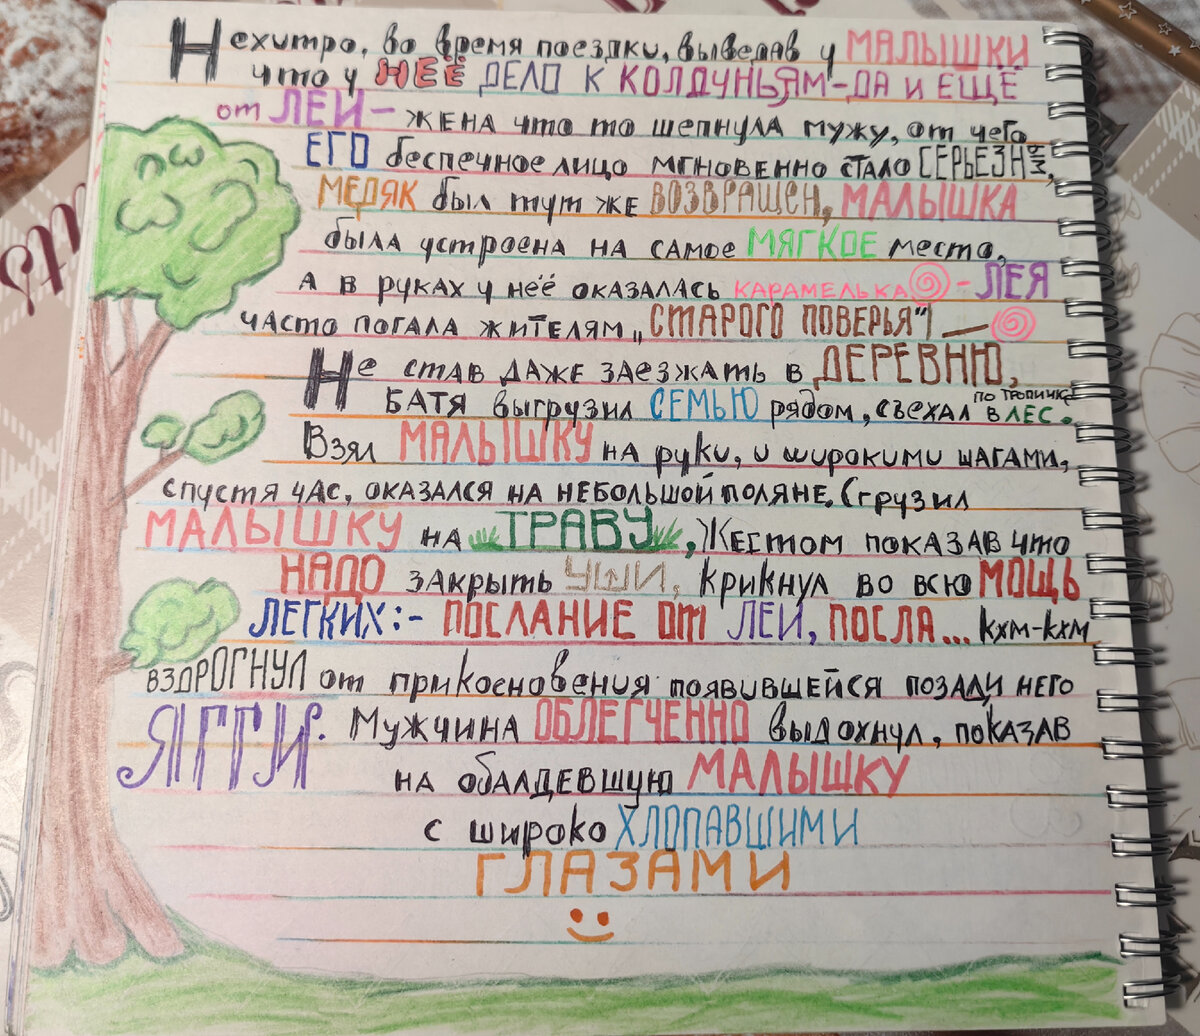 Нехитро, во время поездки, выведав у МАЛЫШКИ
что у НЕЁ ДЕЛО К КОЛДУНЬЯМ-ДА И ЕЩЁ
от ЛЕИ- ЖЕНА что то шепнула мужу, от чего
ЕГО беспечное лицо мгновенно стало СЕРЬЕЗНЫМ,
МЕДЯК был тут же ВОЗВРАЩЕН, МАЛЫШКА
была устроена на самое МЯГКОЕ место,
А в руках у неё оказалась КАРАМЕЛЬКА - ЛЕЯ
ЧАСТО ПОГАЛА ЖИТЕЛЯМ „СТАРОГО ПОВЕРЬЯ"! —
Не став даже заезжать в ДЕРЕВНЮ,
БАТЯ выгрузил СЕМЬЮ рядом, съехал по тропинке в ЛЕС.
Взял МАЛЫШКУ на руки, и широкими шагами,
спустя час, оказался на небольшой поляне. Сгрузил
МАЛЫШКУ на ТРАВУ, Жестом показав что
НАДО закрыть УШИ, крикнул во всю МОЩЬ
ЛЕГКИХ:- ПОСЛАНИЕ от ЛЕИ, ПОСЛА... кхм-кхм
ВЗДРОГНУЛ от прикосновения появившейся позади него
ЯГГИ. Мужчина ОБЛЕГЧЕННО выдохнул, показав
на обалдевшую МАЛЫШКУ
с широко ХЛОПАВШИМИ
ГЛАЗАМИ